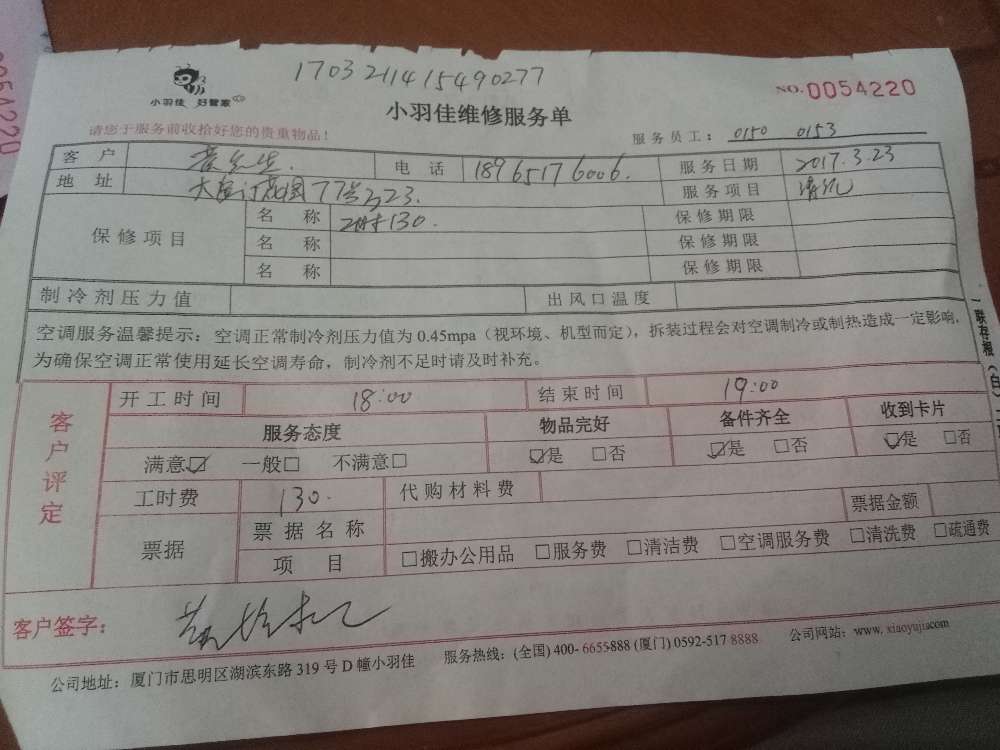 170321141549 0277
小羽佳 好管家
NO.0054220
小羽佳维修服务单
请您于服务前收拾好您的贵重物品！
服务员工： 0150 0153
客户 电话 18965176006. 服务日期 2017.3.23
地址 77号323. 服务项目 清洗
保修项目 名称 130. 保修期限
名称 保修期限
名称 保修期限
制冷剂压力值 出风口温度
空调服务温馨提示：空调正常制冷剂压力值为 0.45mpa（视环境、机型而定），拆装过程会对空调制冷或制热造成一定影响，
为确保空调正常使用延长空调寿命，制冷剂不足时请及时补充。
一联存根（白）
客户评定
开工时间 18:00 结束时间 19:00
服务态度 物品完好 备件齐全 收到卡片
满意☑ 一般□ 不满意□ ☑是 □否 ☑是 □否 ☑是 □否
工时费 130. 代购材料费
票据 票据名称 票据金额
项目 □搬办公用品 □服务费 □清洁费 □空调服务费 □清洗费 □疏通费
客户签字：
公司地址：厦门市思明区湖滨东路 319 号 D 幢小羽佳 服务热线：(全国) 400- 6655888 (厦门) 0592-517 8888 公司网站：www. xiaoyujia.com
0054220